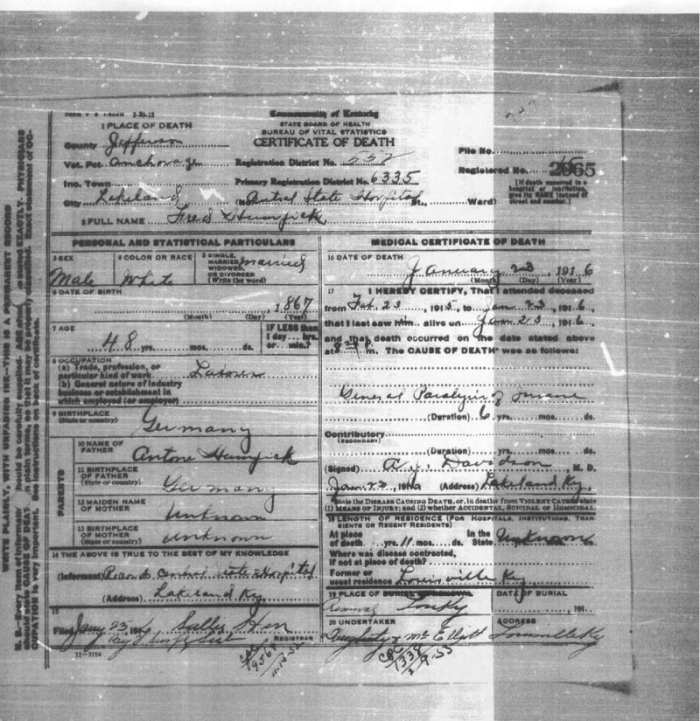 FORM V S 3-20-12
Commonwealth of Kentucky
STATE BOARD OF HEALTH
BUREAU OF VITAL STATISTICS
CERTIFICATE OF DEATH
1 PLACE OF DEATH
County Jefferson
Vot. Pct. Anchorage
Registration District No.
File No.
Inc. Town
Primary Registration District No. 6335
Registered No. 2065
City Lakeland (No. Central State Hospital St., Ward)
[If death occurred in a hospital or institution, give its NAME instead of street and number.]
2 FULL NAME
PERSONAL AND STATISTICAL PARTICULARS
3 SEX Male
4 COLOR OR RACE White
5 SINGLE, MARRIED, WIDOWED, OR DIVORCED (Write the word) married
6 DATE OF BIRTH 1867
(Month) (Day) (Year)
7 AGE 48 yrs. mos. ds.
IF LESS than 1 day hrs. or min.?
8 OCCUPATION
(a) Trade, profession, or particular kind of work
(b) General nature of industry business or establishment in which employed (or employer)
9 BIRTHPLACE (State or country) Germany
PARENTS
10 NAME OF FATHER Antone
11 BIRTHPLACE OF FATHER (State or country) Germany
12 MAIDEN NAME OF MOTHER Unknown
13 BIRTHPLACE OF MOTHER (State or country) Unknown
14 THE ABOVE IS TRUE TO THE BEST OF MY KNOWLEDGE
(Informant) Records Central State Hospital
(Address) Lakeland Ky.
15
Filed Jany 23, 191
REGISTRAR
11-3184
MEDICAL CERTIFICATE OF DEATH
16 DATE OF DEATH
January 23, 1916
(Month) (Day) (Year)
17 I HEREBY CERTIFY, That I attended deceased
from Feb. 23, 1915, to Jan 23, 1916,
that I last saw him alive on Jan 23, 1916,
and that death occurred on the date stated above
at m. The CAUSE OF DEATH was as follows:
General Paralysis of Insane
(Duration) 6 yrs. mos. ds.
Contributory (SECONDARY)
(Duration) yrs. mos. ds.
(Signed) Davidson, M. D.
Jan. 23, 191 (Address) Lakeland Ky.
State the DISEASE CAUSING DEATH, or, in deaths from VIOLENT CAUSES state (1) MEANS OF INJURY; and (2) whether ACCIDENTAL, SUICIDAL OR HOMICIDAL
18 LENGTH OF RESIDENCE (FOR HOSPITALS, INSTITUTIONS, TRANSIENTS OR RECENT RESIDENTS)
At place of death yrs. 11 mos. ds. In the State Unknown
Where was disease contracted, if not at place of death?
Former or usual residence Louisville Ky
19 PLACE OF BURIAL OR REMOVAL
DATE OF BURIAL
191
20 UNDERTAKER
ADDRESS
Louisville Ky